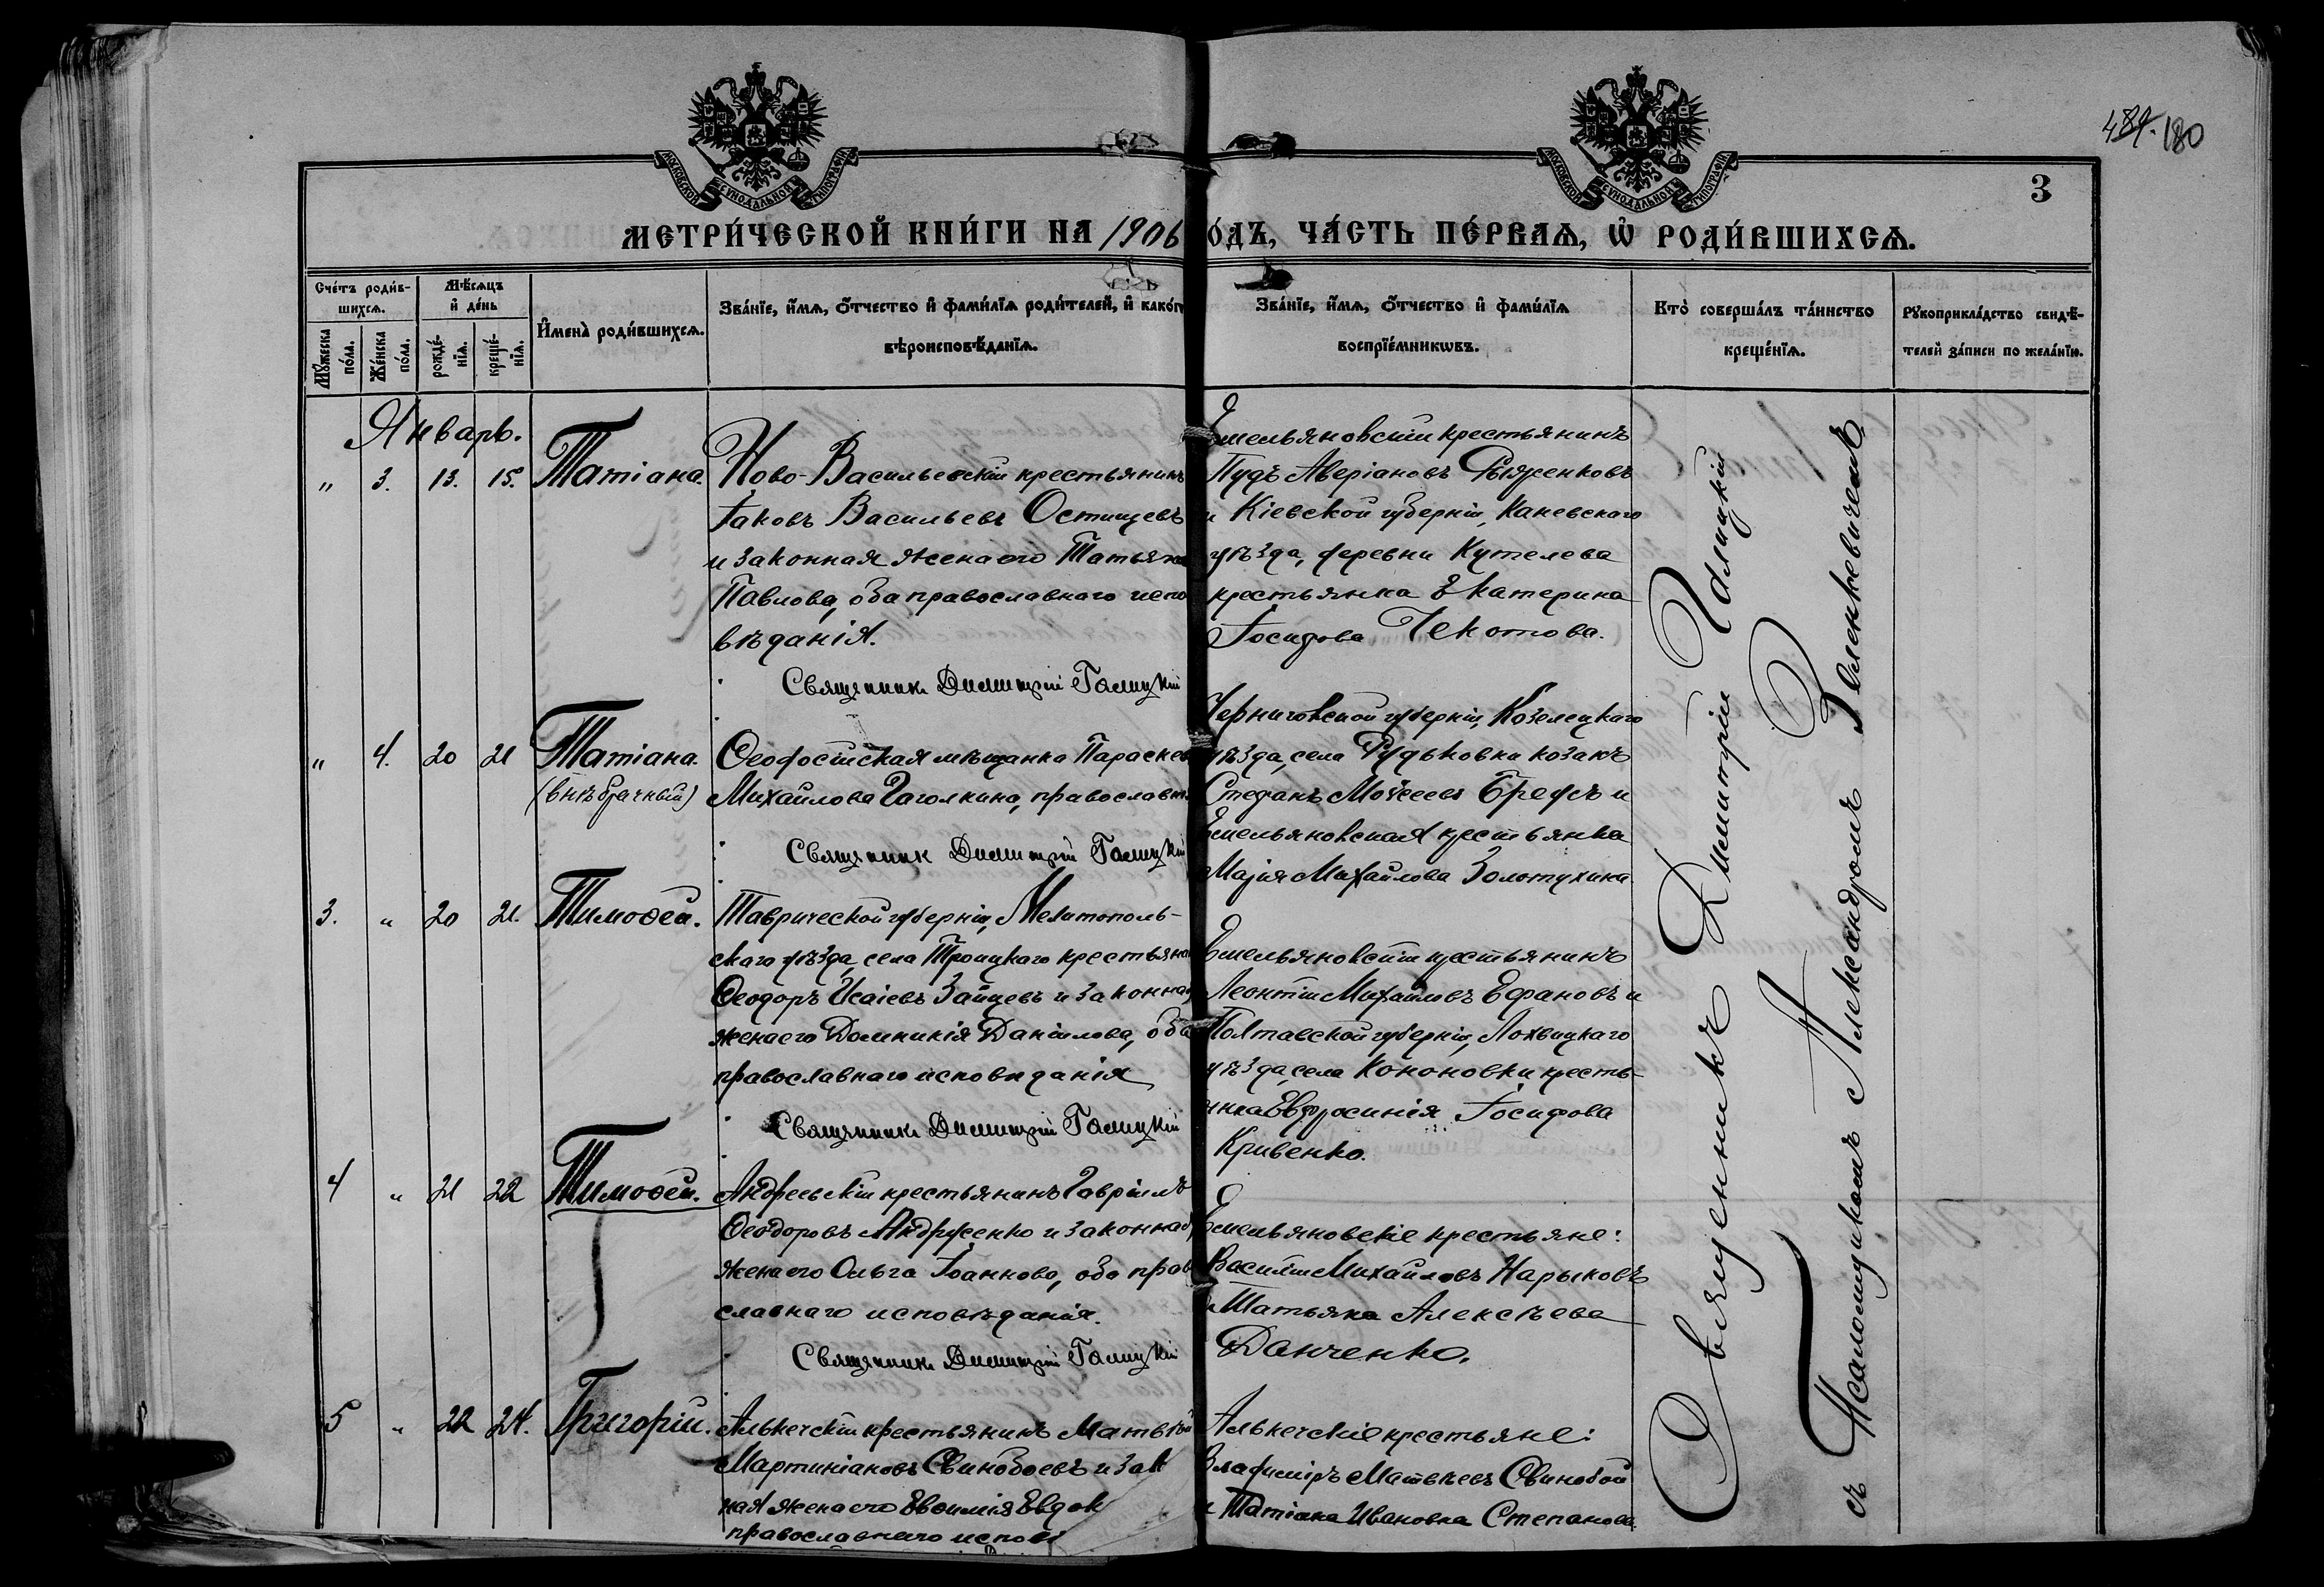 489. 180
МОСКОВСКОЙ СѴНОДАЛЬНОЙ ТИПОГРАФІИ
МОСКОВСКОЙ СѴНОДАЛЬНОЙ ТИПОГРАФІИ
3
МЕТРИ́ЧЕСКОЙ КНИ́ГИ НА 1906 О́ДЪ, ЧА́СТЬ ПЕ́РВАѦ, Ѿ РОДИ́ВШИХСѦ.
Сче́тъ роди́в-
шихсѧ.
Мꙋжеска по́ла.
Же́нска по́ла.
Мѣ́сѧцъ
и҆ де́нь
рожде́-
нїѧ.
креще́-
нїѧ.
И҆мена̀ роди́вшихсѧ.
Зва́нїе, и҆́мѧ, ѻ҆́тчество и҆ фами́лїѧ роди́телей, и҆ како́г
вѣроисповѣ́данїѧ.
Зва́нїе, и҆́мѧ, ѻ҆́тчество и҆ фами́лїѧ
воспрїе́мникѡвъ.
Кто̀ соверша́лъ та́инство
креще́нїѧ.
Рꙋкоприкла́дство свидѣ́-
телей за́писи по жела́нїю.
Январь.
" 3. 13. 15. Татіана.
Ново-Васильевскій крестьянинъ
Іаковъ Васильевъ Остищевъ
и законная жена его Татьяна
Павлова, оба православнаго испо
вѣданія.
Священникъ Димитрій Галицкій
Емельяновскій крестьянинъ
Пудъ Аверіановъ Рыженковъ
и Кіевской губерніи, Каневскаго
уѣзда, деревни Кутелева
крестьянка Екатерина
Іосифова Чекотова.
" 4. 20 21 Татіана.
(внѣбрачный)
Ѳеодосійская мѣщанка Параскев
Михайлова Гаголкина, православн.
Священник Димитрій Галицкій
Черниговской губерніи, Козелецкаго
уѣзда, села Рудьковка козакъ
Стефанъ Моѵсеевъ и
Емельяновская крестьянка
Марія Михайлова Золотухина.
3. " 20 21. Тимоѳей.
Таврической губерніи, Мелитополь-
скаго уѣзда, села Троицкаго крестьянин
Ѳеодоръ Исаіевъ Зайцевъ и законная
жена его Домникія Даніилова, оба
православнаго исповѣданія
Священникъ Димитрій Галицкій
Емельяновскій крестьянинъ
Леонтій Михайловъ Ефановъ и
Полтавской губерніи, Лохвицкаго
уѣзда, села Кононовки кресть-
янка Евфросинія Іосифова
Кривенко.
4 " 21 22 Тимоѳей.
Андреевскій крестьянинъ Гавріилъ
Ѳеодоровъ Андрусенко и законная
жена его Ольга Іоаннова, оба прав
славнаго исповѣданія.
Священникъ Димитрій Галицкій
Емельяновскіе крестьяне:
Василій Михайловъ Нарыковъ
и Татьяна Алексѣева
Данченко.
5 " 22 24. Григорій.
Алькечскій крестьянинъ Матвѣй
Мартиніановъ Свинобоевъ и зак
ная жена его Евѳимія Евдок
православнаго испові
Алькечскіе крестьяне:
Владиміръ Матвѣевъ Свинобой
и Татіана Ивановна Степанова.
Священникъ Димитрій Галицкій
съ Псаломщикомъ Александромъ Зеленкевичемъ